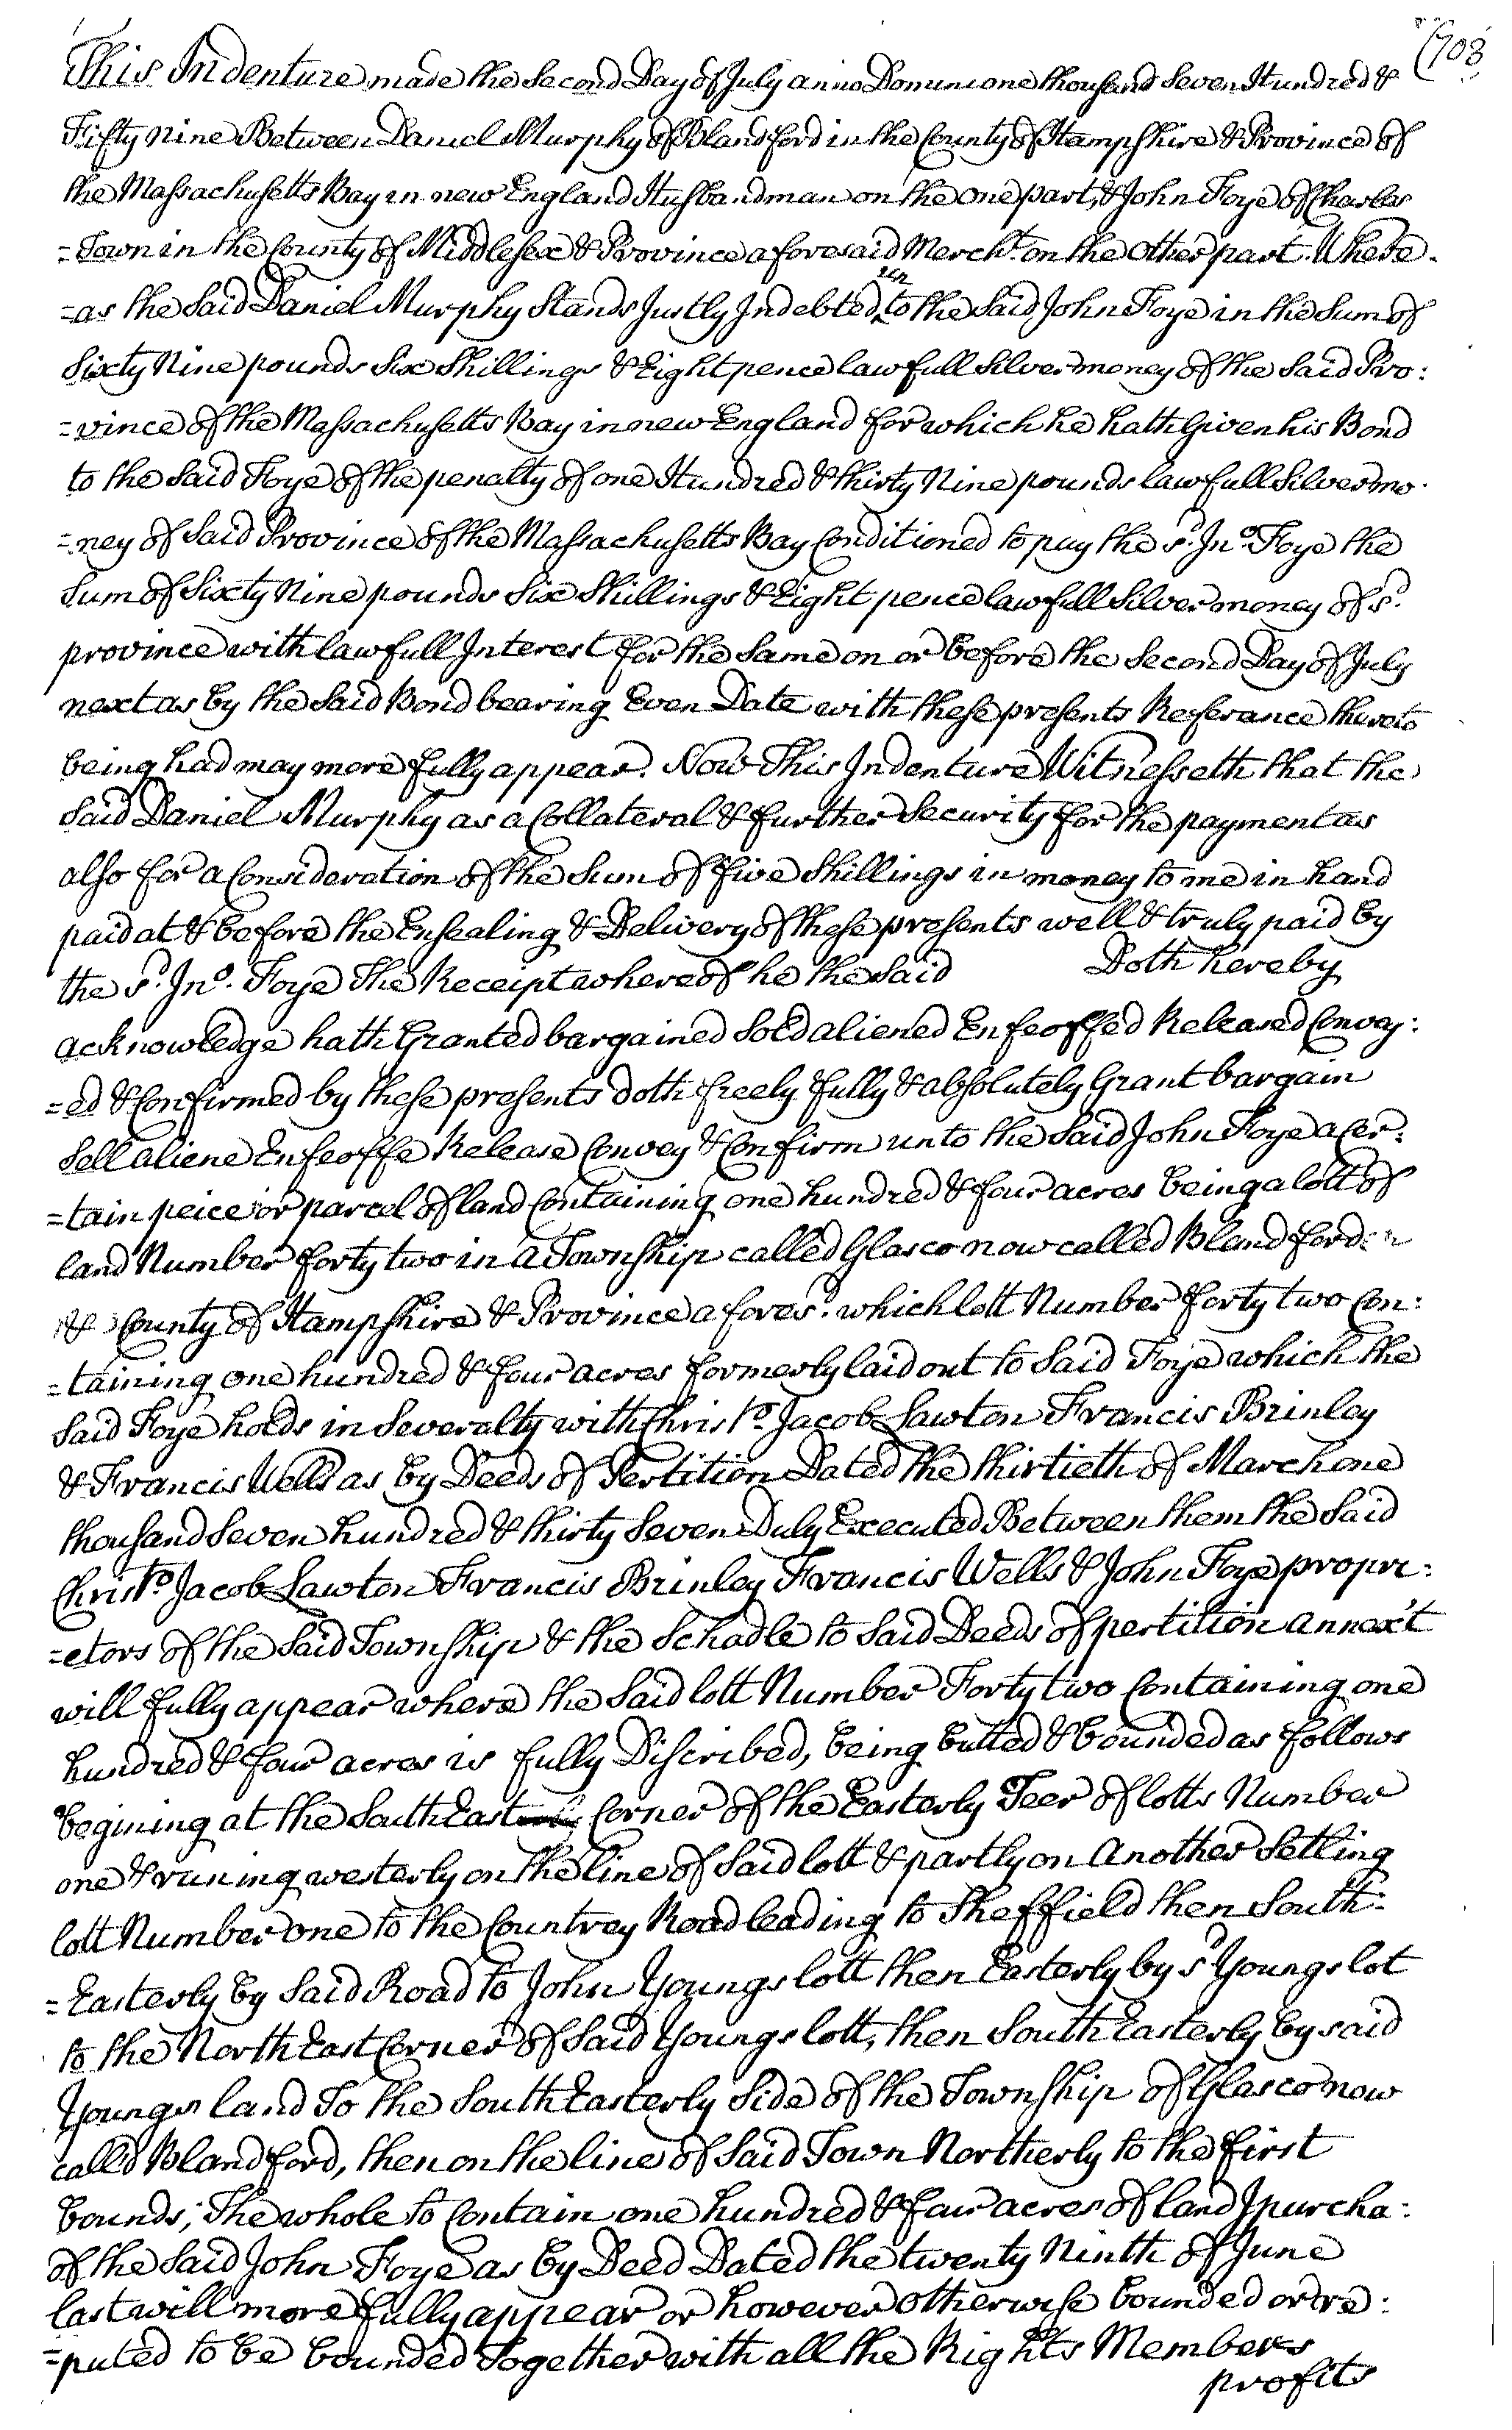 (708
This Indenture made the Second Day of July anno Domini one thousand Seven Hundred &
Fifty nine Between Daniel Murphy of Blandford in the County of Hampshire & Province of
the Massachusetts Bay in new England Husbandman on the one part, & John Foye of Charles
=Town in the County of Middlesex & Province aforesaid Mercht. on the other part. Where-
=as the Said Daniel Murphy Stands Justly Indebted to the Said John Foye in the Sum of
Sixty Nine pounds Six Shillings & Eight pence lawfull Silver money of the Said Pro:
=vince of the Massachusetts Bay in new England for which he hath Given his Bond
to the Said Foye of the penalty of one Hundred & thirty Nine pounds lawfull Silver mo-
=ney of Said Province of the Massachusetts Bay Conditioned to pay the sd. Jno. Foye the
Sum of Sixty Nine pounds Six Shillings & Eight pence lawfull Silver money of sd.
province with lawfull Interest for the Same on or before the Second Day of July
next as by the Said Bond bearing Even Date with these presents Referance thereto
being had may more fully appear. Now This Indenture Witnesseth that the
Said Daniel Murphy as a Collateral & further Security for the payment as
also for a Consideration of the Sum of five Shillings in money to me in hand
paid at & before the Ensealing & Delivery of these presents well & truly paid by
the sd. Jno. Foye The Receipt whereof he the Said Doth hereby
acknowledge hath Granted bargained Sold aliened Enfeoffed Released Convey:
=ed & Confirmed by these presents doth freely fully & absolutely Grant bargain
Sell aliene Enfeoffe Release Convey & Confirm unto the Said John Foye a Cer:
=tain peice or parcel of land Containing one hundred & four acres being a lott of
land Number forty two in a Township called Glasco now called Blandford in
& County of Hampshire & Province aforesd. which lott Number forty two Con:
=taining one hundred & four acres formerly laid out to Said Foye which the
Said Foye holds in Severalty with Christo. Jacob Lawton Francis Brinley
& Francis Wells as by Deeds of Pertition Dated the thirtieth of March one
thousand Seven hundred & thirty Seven Duly Executed Between them the Said
Christo. Jacob Lawton Francis Brinley Francis Wells & John Foye propri:
=etors of the Said Township & the Schadle to Said Deeds of pertition annex't
will fully appear where the Said lott Number Forty two Containing one
hundred & four acres is fully Discribed, being butted & bounded as follows
begining at the South East Corner of the Easterly Teer of lotts Number
one & runing westerly on the line of Said lott & partly on Another Setling
lott Number one to the Countrey Road leading to Sheffield then South:
=Easterly by Said Road to John Youngs lott then Easterly by sd Youngs lot
to the North East Corner of Said Youngs lott, then South Easterly by said
Youngs land To the South Easterly Side of the Township of Glasco now
calld Blandford, then on the line of Said Town Northerly to the first
bounds; The whole to Contain one hundred & four acres of land I purcha:
of the Said John Foye as by Deed Dated the twenty Ninth of June
last will more fully appear or however otherwise bounded or re:
=puted to be bounded Together with all the Rights Members
profits